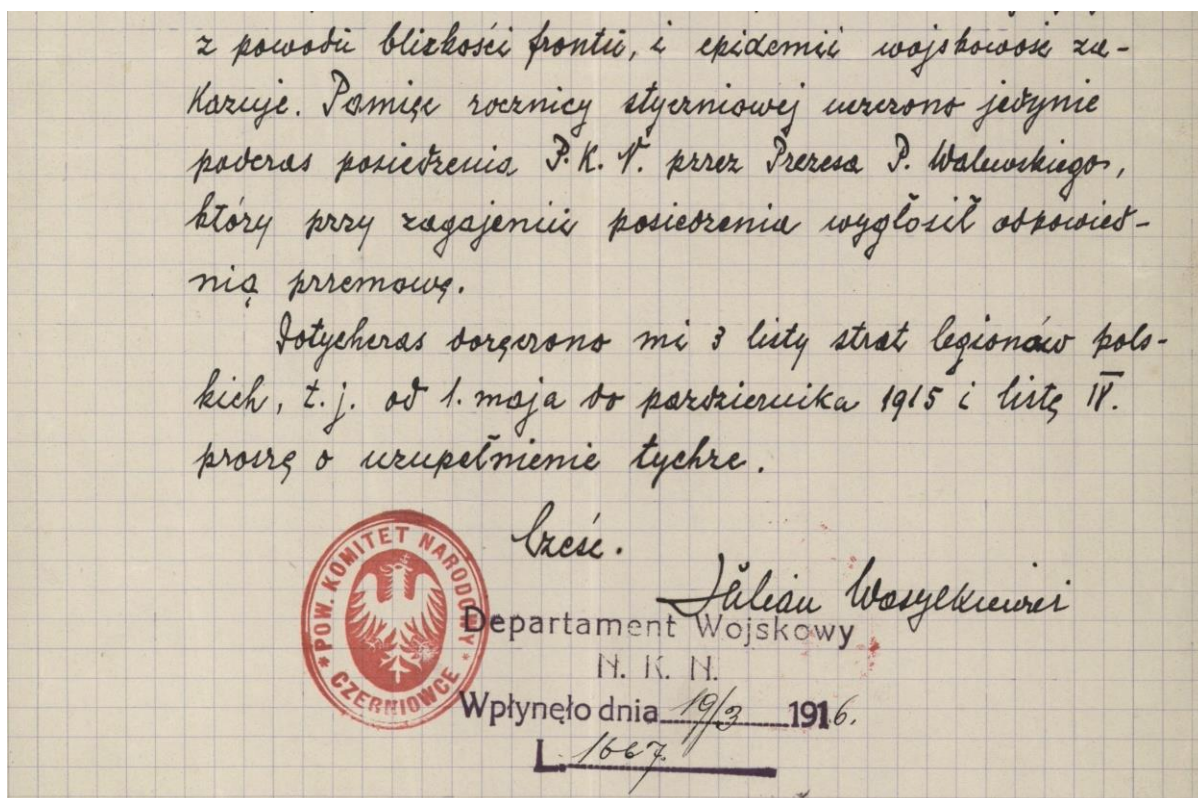 z powodu blizkości frontu, i epidemii wojskowość za-
kazuje. Pamięć rocznicy styczniowej uczczono jedynie
podczas posiedzenia P. K. N. przez Prezesa P. Walewskiego,
który przy zagajeniu posiedzenia wygłosił odpowied-
nią przemowę.
Dotychczas doręczono mi 3 listy strat legionów pols-
kich, t. j. od 1. maja do października 1915 i listę IV.
proszę o uzupełnienie tychże.
Cześć.
Julian Wasylkiewicz
POW. KOMITET NARODOWY
* CZERNIOWCE *
Departament Wojskowy
N. K. N.
Wpłynęło dnia 19/3 1916.
L. 1667